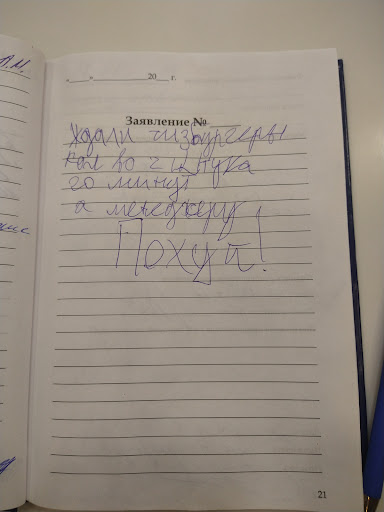 л.м.
«____»______________20___ г.
Заявление №
Ждали чизбургеры
кол во 2 штука
20 минут
а менеджеру
Похуй!
21